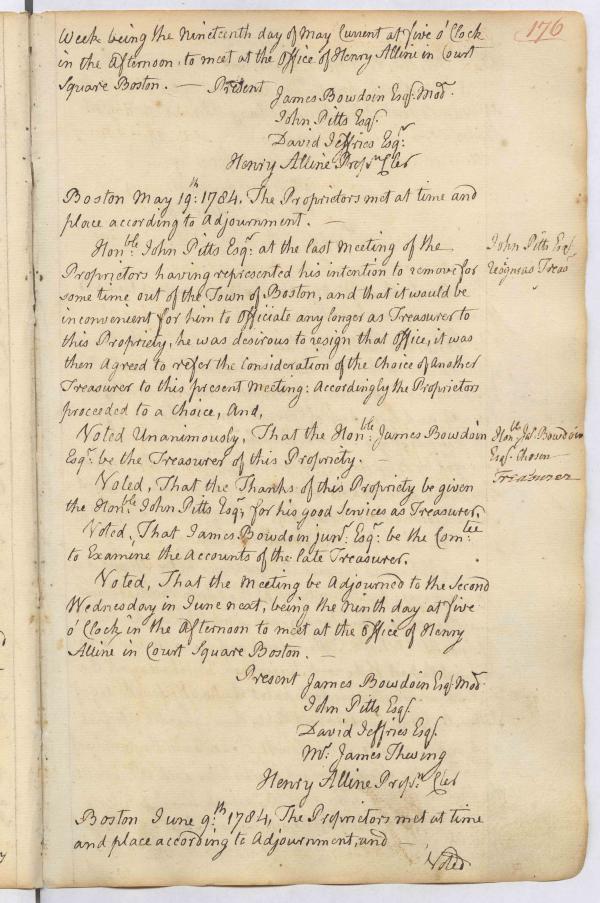 176
Week being the Nineteenth day of May Current at five o'Clock
in the Afternoon, to meet at the Office of Henry Alline in Court
Square Boston. — Present
James Bowdoin Esqr. Modr.
John Pitts Esqr.
David Jeffries Esqr.
Henry Alline Proprs Cler
Boston May 19th: 1784, The Proprietors met at time and
place according to Adjournment. —
Honble. John Pitts Esqr. at the last Meeting of the
John Pitts Esqr
Proprietors having represented his intention to remove for
resigns as Treasr
some time out of the Town of Boston, and that it would be
inconvenient for him to Officiate any longer as Treasurer to
this Propriety, he was desirous to resign that Office, it was
then Agreed to refer the Consideration of the Choice of Another
Treasurer to this present Meeting: Accordingly the Proprietors
proceeded to a Choice, And,
Voted Unanimously, That the Honble. James Bowdoin
Honble Jas. Bowdoin
Esqr. be the Treasurer of this Propriety. —
Esqr. Chosen
Treasurer
Voted, That the Thanks of this Propriety be given
the Honble John Pitts Esqr, for his good Services as Treasurer.
Voted, That James Bowdoin junr. Esqr. be the Comtee
to Examine the Accounts of the late Treasurer.
Voted, That the Meeting be Adjourned to the Second
Wednesday in June next, being the Ninth day at five
o'Clock in the Afternoon to meet at the Office of Henry
Alline in Court Square Boston. —
Present James Bowdoin Esqr. Modr.
John Pitts Esqr.
David Jeffries Esqr.
Mr. James Thwing
Henry Alline Proprs Cler
Boston June 9th: 1784, The Proprietors met at time
and place according to Adjournment, and —
Voted